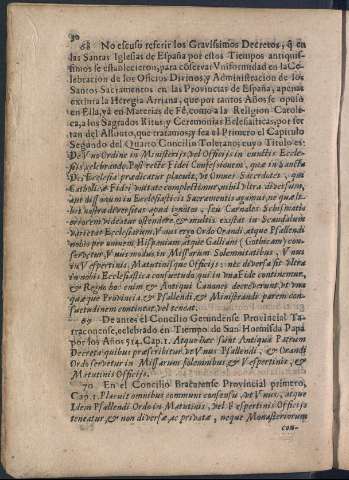 30
68 No escuso referir los Gravissimos Decretos, q̃ en
las Santas Iglesias de España por estos Tiempos antiquis-
simos se establecieron, para cõservar Vniformidad en la Ce-
lebracion de los Oficios Divinos, y Administracion de los
Santos Sacramentos en las Provincias de España, apenas
extinta la Heregia Arriana, que por tantos Años se opuso
en Ella, ya en Materias de Fè, como a la Religion Catoli-
ca, a los Sagrados Ritus y Ceremonias Ecclesiasticas, por ser
tan del Assunto, que tratamos; y sea el Primero el Capitulo
Segundo del Quarto Concilio Toletano; cuyo Titulo es:
De Vno Ordine in Ministerijs, vel Officijs in cunctis Eccle-
sijs celebrando. Post rectæ Fidei Confessionem, quæ in sancta
Dei Ecclesia prædicatur placuit, vt Omnes Sacerdotes, qui
Catholicæ Fidei vnitate complectimur, nihil vltra diversum,
aut dissonum in Ecclesiasticis Sacramentis agamus, ne quælt-
bet nostra diversitas apud ignotos, seu Carnales Schismatis
errorem videatur ostendere, & multis existat in Scandalum
varietas Ecclesiarum. Vnus ergo Ordo Orandi, atque Psallendi
nobis per omnem Hispaniam atque Galliam (Gothicam) con-
servetur, Vnus modus in Missarum Solemnitatibus, Vnus
in Vespertinis, Matutinisque Officijs: nec diversa sit vltra
in nobis Ecclesiastica consuetudo qui in vna Fide continemur,
& Regno hoc enim & Antiqui Canones decreverunt, vt vna
quæque Provincia & Psallendi, & Ministrandi parem con-
suetudinem contineat, vel teneat.
69 De antes el Concilio Gerundense Provincial Ta-
rraconense, celebrado en Tiempo de San Hormisda Papa
por los Años 514. Cap. 1. Atque hæc sunt Antiquâ Patrum
Decreta quibus præscribitur, vt Vnus Psallendi, & Orandi
Ordo servetur in Missarum solemnibus & Vespertinis, &
Matutinis Officijs.
70 En el Concilio Bracarense Provincial primero,
Cap. 1. Placuit omnibus communi consensu, vt Vnus, atque
Idem Psallendi Ordo in Matutinis, vel Vespertinis Officijs
teneatur, & non diversæ, ac privatæ, neque Monasteriorum
con-